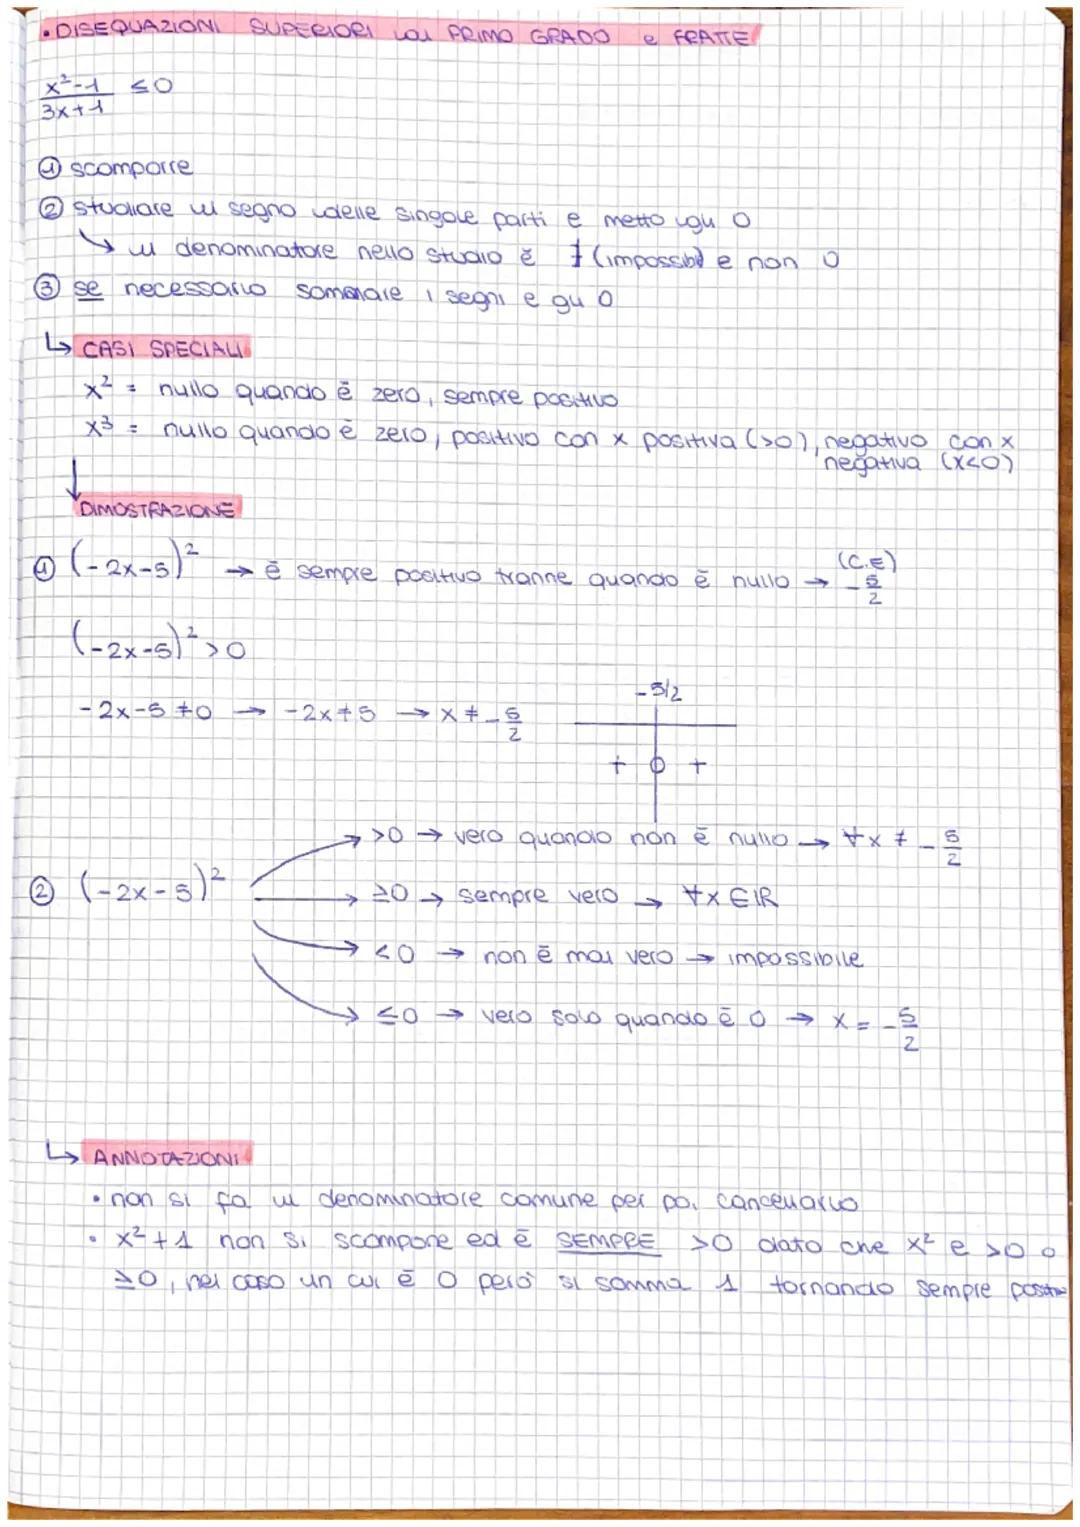 • DISEQUAZIONI SUPERIORI al PRIMO GRADO e FRATTE
x²-1 ≤0
3x+1
① scomporre
② studiare il segno delle singole parti e metto gli 0
↳ il denominatore nello studio è ∄ (impossibile e non 0
③ se necessario sommare i segni e gli 0
↳ CASI SPECIALI
x² = nullo quando è zero, sempre positivo
x³ = nullo quando è zero, positivo con x positiva (>0), negativo con x
negativa (x<0)
↓
DIMOSTRAZIONE
① (-2x-5)² → è sempre positivo tranne quando è nullo → (C.E) -5/2
(-2x-5)²>0
-2x-5≠0 → -2x≠5 → x≠-5/2
-5/2
+ 0 +
>0 → vero quando non è nullo → ∀x ≠ -5/2
② (-2x-5)²
≥0 → sempre vero → ∀x ∈ℝ
<0 → non è mai vero → impossibile
≤0 → vero solo quando è 0 → x = -5/2
↳ ANNOTAZIONI
• non si fa il denominatore comune per poi cancellarlo
• x²+1 non si scompone ed è SEMPRE >0 dato che x² e >0 o
≥0, nel caso un cui è 0 però si somma 1 tornando sempre positivo